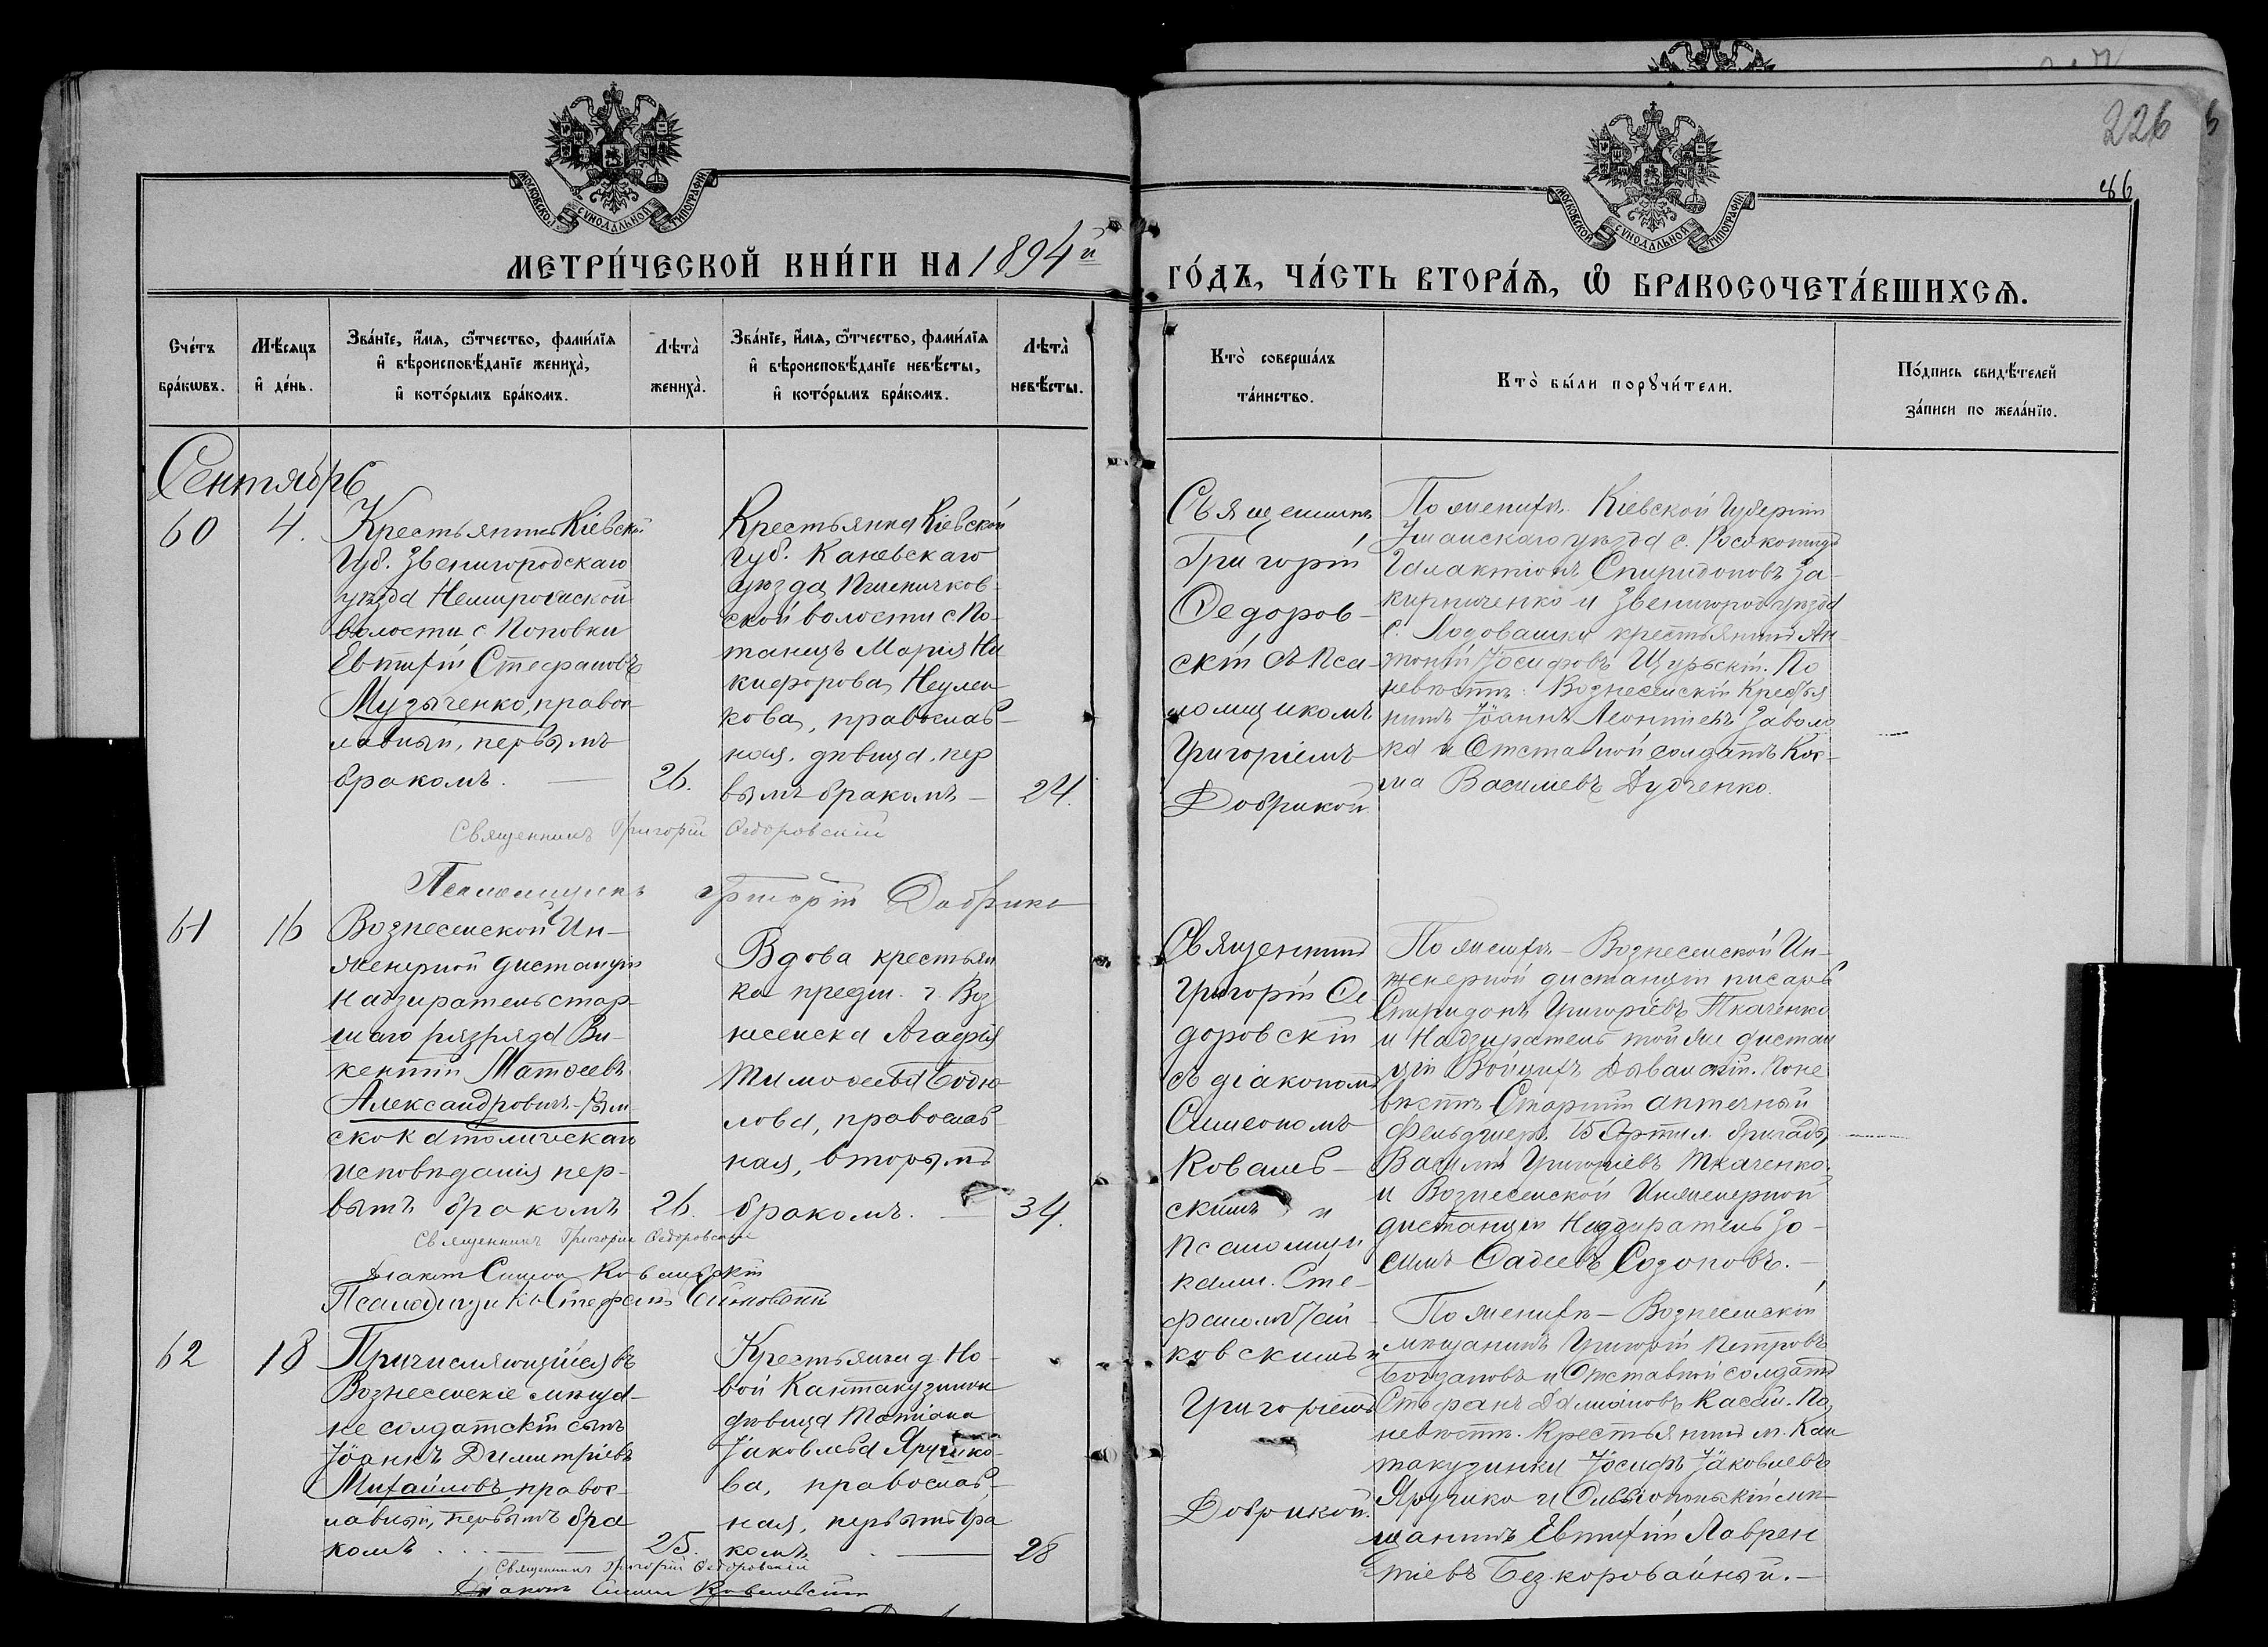 226
86
МОСКОВСКОЙ СѴНОДАЛЬНОЙ ТИПОГРАФІИ
МОСКОВСКОЙ СѴНОДАЛЬНОЙ ТИПОГРАФІИ
МЕТРИ́ЧЕСКОЙ КНИ́ГИ НА 1894й
ГО́ДЪ, ЧА́СТЬ ВТОРА́Ѧ, Ѽ БРАКОСОЧЕТА́ВШИХСѦ.
Сче́тъ бра́кωвъ.
Мѣ́сяцъ и де́нь.
Зва́нїе, и́мя, ѻ́тчество, фами́лїя и вѣроисповѣ́данїе жениха̀, и кото́рымъ бра́комъ.
Лѣта̀ жениха̀.
Зва́нїе, и́мя, ѻ́тчество, фами́лїя и вѣроисповѣ́данїе невѣ́сты, и кото́рымъ бра́комъ.
Лѣта̀ невѣ́сты.
Кто̀ соверша́лъ та́инство.
Кто̀ бы́ли порꙋчи́тели.
По́дпись свидѣ́телей за́писи по жела́нїю.
Сентябрь
60
4.
Крестьянинъ Кіевской
Губ. Звенигородскаго
уѣзда
волости с. Поповки
Евтихій Стефановъ
Музыченко, правос-
лавный, первымъ
бракомъ. —
26.
Крестьянка Кіевской
губ. Каневскаго
уѣзда Пшеничков-
ской волости с. По-
тапецъ Марія Ни
кифорова
кова, православ-
ная, дѣвица, пер
вымъ бракомъ —
24.
Священникъ
Григорій
Ѳедоров-
скій съ Пса-
ломщикомъ
Григоріемъ
Добрикой
По женихѣ. Кіевской Губерніи
Уманскаго уѣзда с.
Галактіонъ Спиридоновъ За-
кирниченко и Звенигород. уѣзда
с. крестьянинъ Ан-
тоній Іосифовъ Щурскій. По
невѣстѣ: Вознесенскій Крестья
нинъ Іоаннъ Леонтіевъ Заволо
ка и Отставной солдатъ Кос-
ма Василіевъ Дудченко.
Священникъ Григорій Ѳедоровскій
Псаломщикъ Григорій Добрика
61
16
Вознесенской Ин-
женерной дистанціи
Надзиратель стар-
шаго разряда Ви-
кентій Матѳеевъ
Александровичъ - Рим
скокатолическаго
исповѣданія пер-
вымъ бракомъ
26.
Вдова крестьян
ка предм. г. Воз
несенска Агафія
Тимоѳеева Бодю
лова, православ
ная, вторымъ
бракомъ. —
34.
Священникъ
Григорій Ѳе
доровскій
съ діакономъ
Симеономъ
Коваль-
скимъ и
псаломщи
ками. Сте-
фаномъ Чай
ковскимъ и
Григоріемъ
Добрикой.
По женихѣ — Вознесенской Ин-
женерной дистанціи писарь
Спиридонъ Григоріевъ Ткаченко
и Надзиратель той же дистан
ціи Войцехъ . По не
вѣстѣ Старшій аптечный
фельдшеръ 15 Артил. бригады
Василій Григоріевъ Ткаченко.
и Вознесенской Инженерной
дистанціи Надзиратель Зо-
симъ Ѳадеевъ Созоновъ. —
Священникъ Григорій Ѳедоровскій
Діаконъ Симеонъ Ковальскій
Псаломщикъ Стефанъ Чайковскій
62
18
Причисляющійся въ
Вознесенскіе мѣща-
не солдатскій сынъ
Іоаннъ Димитріевъ
Михайловъ, правос-
лавный, первымъ бра
комъ . . . —
25.
Крестьянка д. Но-
вой Кантакузинки
дѣвица Татіана
Іаковлева Яручико-
ва, православ-
ная, первымъ бра
комъ. —
28
По женихѣ — Вознесенскій
мѣщанинъ Григорій Петровъ
Богдановъ и Отставной солдатъ
Стефанъ Даміановъ Касай. По
невѣстѣ. Крестьянинъ м. Кан
такузинки Іосифъ Іаковлевъ
Яручико и Ольвіопольскій мѣ-
щанинъ Евтихій Лаврен
тіевъ Безкоровайный. —
Священникъ Григорій Ѳедоровскій
Діаконъ Симеонъ Ковальскій